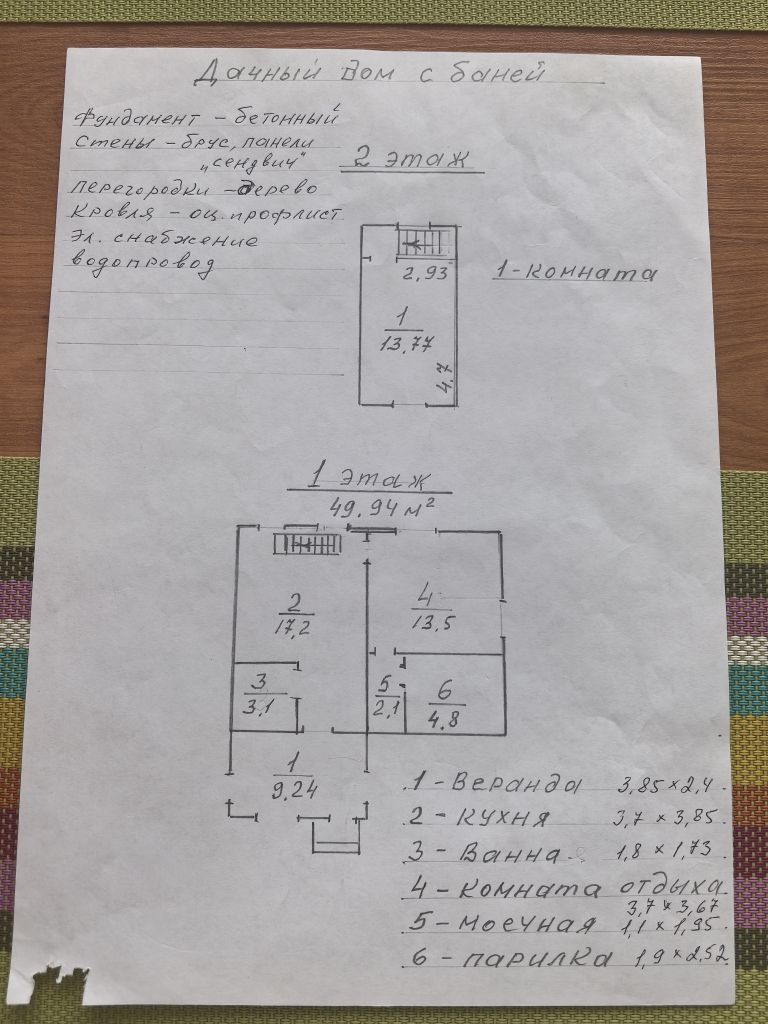 Дачный дом с баней
Фундамент - бетонный
Стены - брус, панели
„сендвич"
Перегородки - дерево
Кровля - оц. профлист
Эл. снабжение
водопровод
2 этаж
2,93
1 - комната
1
13.77
4.7
1 этаж
49.94 м²
2
17,2
4
13,5
3
3,1
5
2,1
6
4.8
1
9.24
1 - Веранда 3,85 × 2,4
2 - кухня 3,7 × 3,85
3 - Ванна 1,8 × 1,73
4 - комната отдыха
3,7 × 3,67
5 - моечная 1,1 × 1,95
6 - парилка 1,9 × 2,52